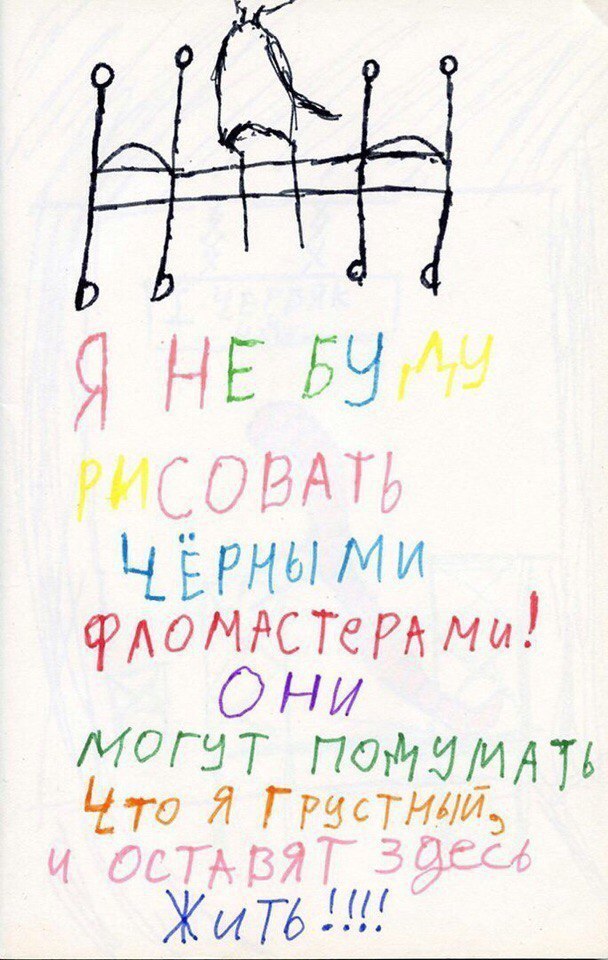 Я НЕ БУДУ
РИСОВАТЬ
ЧЁРНЫМИ
ФЛОМАСТЕРАМИ!
ОНИ
МОГУТ ПОДУМАТЬ
ЧТО Я ГРУСТНЫЙ,
И ОСТАВЯТ ЗДЕСЬ
ЖИТЬ!!!!